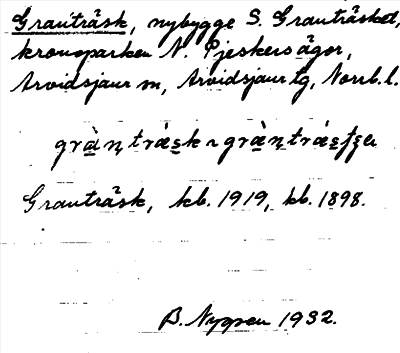 Granträsk, nybygge S. Granträsket,
kronoparken N. Pjeskers ägor,
Arvidsjaur sn, Arvidsjaur tg, Norrb. l.
gràntrásk ~
Granträsk, kb. 1919, kb. 1898.
B. Nygren 1932.